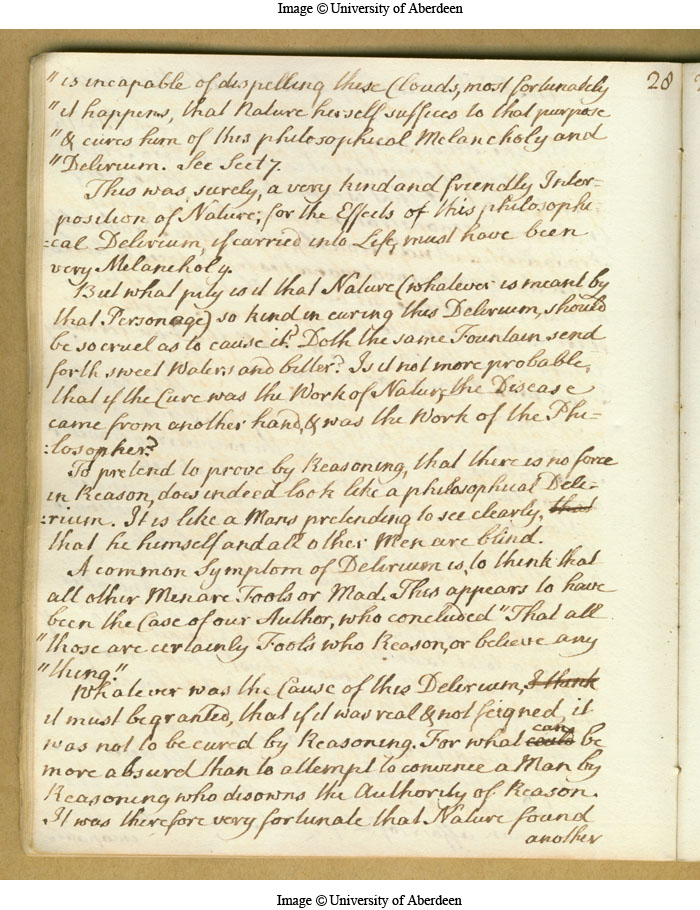 Image © University of Aberdeen
28
" is incapable of dispelling these Clouds, most fortunately
" it happens, that Nature herself suffices to that purpose
" & cures him of this philosophical Melancholy and
" Delirium. See Sect 7.
This was, surely, a very kind and friendly Inter-
position of Nature; for the Effects of this philosophi-
:cal Delirium, if carried into Life, must have been
very Melancholy.
But what pity is it that Nature (whatever is meant by
that Personage) so kind in curing this Delirium, should
be so cruel as to cause it? Doth the same Fountain send
forth sweet Waters and bitter? Is it not more probable,
that if the Cure was the Work of Nature, the Disease
came from another hand, & was the Work of the Phi-
:losopher?
To pretend to prove by Reasoning, that there is no force
in Reason, does indeed look like a philosophical Dele-
:rium. It is like a Mans pretending to see clearly, that
that he himself and all other Men are blind.
A common Symptom of Delirium is, to think that
all other Men are Fools or Mad. This appears to have
been the Case of our Author, who concluded "That all
" those are certainly Fools who Reason, or believe any
" thing."
Whatever was the Cause of this Delirium, I think
it must be granted, that if it was real & not feigned, it
was not to be cured by Reasoning. For what could can be
more absurd than to attempt to convince a Man by
Reasoning who disowns the Authority of Reason.
It was therefore very fortunate that Nature found
another
Image © University of Aberdeen